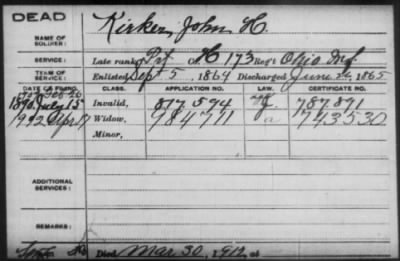 DEAD
Kirker, John H.
NAME OF SOLDIER:
SERVICE:
Late rank, Pvt Co. H 173 Reg't Ohio Inf.
TERM OF SERVICE:
Enlisted Sept 5, 1864 Discharged June 26, 1865
DATE OF FILING. CLASS. APPLICATION NO. LAW. CERTIFICATE NO.
1890 July 15 Invalid, 877.594 787.891
1912 Apr 17 Widow, 984711 a 743530
Minor,
ADDITIONAL SERVICES:
REMARKS:
Died Mar. 30, 1912, at